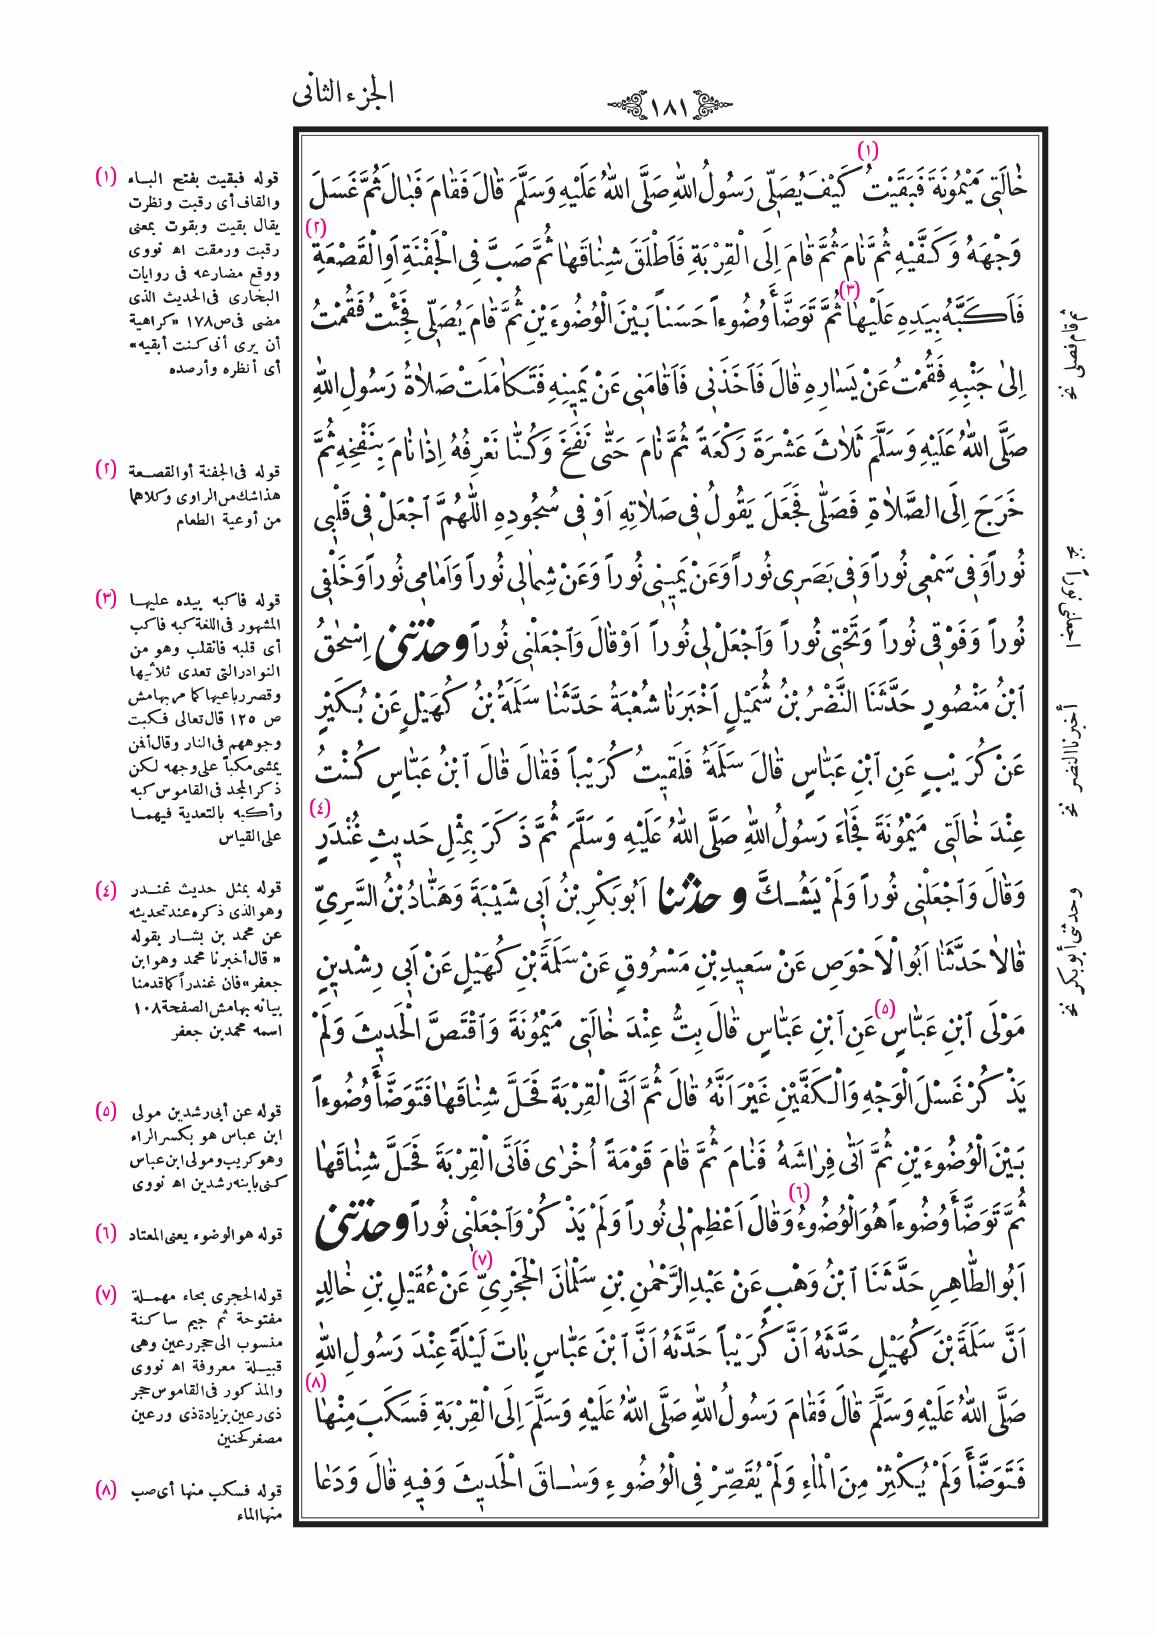 الجزء الثانى
١٨١
خَالَتِى مَيْمُونَةَ فَبَقَيْتُ (١) كَيْفَ يُصَلِّى رَسُولُ اللهِ صَلَّى اللهُ عَلَيْهِ وَسَلَّمَ قَالَ فَقَامَ فَبَالَ ثُمَّ غَسَلَ
وَجْهَهُ وَكَفَّيْهِ ثُمَّ نَامَ ثُمَّ قَامَ اِلَى الْقِرْبَةِ فَاَطْلَقَ شِنَاقَهَا ثُمَّ صَبَّ فِى الْجَفْنَةِ اَوِ الْقَصْعَةِ (٢)
فَاَكَبَّهُ بِيَدِهِ عَلَيْهَا (٣) ثُمَّ تَوَضَّأَ وُضُوءاً حَسَناً بَيْنَ الْوُضُوءَيْنِ ثُمَّ قَامَ يُصَلِّى فَجِئْتُ فَقُمْتُ
اِلىٰ جَنْبِهِ فَقُمْتُ عَنْ يَسَارِهِ قَالَ فَاَخَذَنِى فَاَقَامَنِى عَنْ يَمِينِهِ فَتَكَامَلَتْ صَلَاةُ رَسُولِ اللهِ
صَلَّى اللهُ عَلَيْهِ وَسَلَّمَ ثَلَاثَ عَشْرَةَ رَكْعَةً ثُمَّ نَامَ حَتّٰى نَفَخَ وَكُنَّا نَعْرِفُهُ اِذَا نَامَ بِنَفْخِهِ ثُمَّ
خَرَجَ اِلَى الصَّلَاةِ فَصَلّٰى فَجَعَلَ يَقُولُ فِى صَلَاتِهِ اَوْ فِى سُجُودِهِ اللّٰهُمَّ ٱجْعَلْ فِى قَلْبِى
نُوراً وَفِى سَمْعِى نُوراً وَفِى بَصَرِى نُوراً وَعَنْ يَمِينِى نُوراً وَعَنْ شِمَالِى نُوراً وَاَمَامِى نُوراً وَخَلْفِى
نُوراً وَفَوْقِى نُوراً وَتَحْتِى نُوراً وَٱجْعَلْ لِى نُوراً اَوْ قَالَ وَٱجْعَلْنِى نُوراً وحدثنى اِسْحٰقُ
ٱبْنُ مَنْصُورٍ حَدَّثَنَا النَّضْرُ بْنُ شُمَيْلٍ اَخْبَرَنَا شُعْبَةُ حَدَّثَنَا سَلَمَةُ بْنُ كُهَيْلٍ عَنْ بُكَيْرٍ
عَنْ كُرَيْبٍ عَنِ ٱبْنِ عَبَّاسٍ قَالَ سَلَمَةُ فَلَقِيتُ كُرَيْباً فَقَالَ قَالَ ٱبْنُ عَبَّاسٍ كُنْتُ
عِنْدَ خَالَتِى مَيْمُونَةَ فَجَاءَ رَسُولُ اللهِ صَلَّى اللهُ عَلَيْهِ وَسَلَّمَ ثُمَّ ذَكَرَ بِمِثْلِ حَدِيثِ غُنْدَرٍ (٤)
وَقَالَ وَٱجْعَلْنِى نُوراً وَلَمْ يَشُكَّ و حدثنا اَبُو بَكْرِ بْنُ اَبِى شَيْبَةَ وَهَنَّادُ بْنُ السَّرِىِّ
قَالَا حَدَّثَنَا اَبُو الْاَحْوَصِ عَنْ سَعِيدِ بْنِ مَسْرُوقٍ عَنْ سَلَمَةَ بْنِ كُهَيْلٍ عَنْ اَبِى رِشْدِينٍ
مَوْلَى ٱبْنِ عَبَّاسٍ (٥) عَنِ ٱبْنِ عَبَّاسٍ قَالَ بِتُّ عِنْدَ خَالَتِى مَيْمُونَةَ وَٱقْتَصَّ الْحَدِيثَ وَلَمْ
يَذْكُرْ غَسْلَ الْوَجْهِ وَالْكَفَّيْنِ غَيْرَ اَنَّهُ قَالَ ثُمَّ اَتَى الْقِرْبَةَ فَحَلَّ شِنَاقَهَا فَتَوَضَّأَ وُضُوءاً
بَيْنَ الْوُضُوءَيْنِ ثُمَّ اَتٰى فِرَاشَهُ فَنَامَ ثُمَّ قَامَ قَوْمَةً اُخْرٰى فَاَتَى الْقِرْبَةَ فَحَلَّ شِنَاقَهَا
ثُمَّ تَوَضَّأَ وُضُوءاً هُوَ الْوُضُوءُ (٦) وَقَالَ اَعْظِمْ لِى نُوراً وَلَمْ يَذْكُرْ وَٱجْعَلْنِى نُوراً وحدثنى
اَبُو الطَّاهِرِ حَدَّثَنَا ٱبْنُ وَهْبٍ عَنْ عَبْدِ الرَّحْمٰنِ بْنِ سَلْمَانَ الْحَجْرِىِّ (٧) عَنْ عُقَيْلِ بْنِ خَالِدٍ
اَنَّ سَلَمَةَ بْنَ كُهَيْلٍ حَدَّثَهُ اَنَّ كُرَيْباً حَدَّثَهُ اَنَّ ٱبْنَ عَبَّاسٍ بَاتَ لَيْلَةً عِنْدَ رَسُولِ اللهِ
صَلَّى اللهُ عَلَيْهِ وَسَلَّمَ قَالَ فَقَامَ رَسُولُ اللهِ صَلَّى اللهُ عَلَيْهِ وَسَلَّمَ اِلَى الْقِرْبَةِ فَسَكَبَ مِنْهَا (٨)
فَتَوَضَّأَ وَلَمْ يُكْثِرْ مِنَ الْمَاءِ وَلَمْ يُقَصِّرْ فِى الْوُضُوءِ وَسَاقَ الْحَدِيثَ وَفِيهِ قَالَ وَدَعَا
ثم قام فصلى نخ
اجعلنى نوراً نخ
أخبرنا النضر نخ
وحدثنى أبو بكر نخ
(١) قوله فبقيت بفتح الباء
والقاف أى رقبت ونظرت
يقال بقيت وبقوت بمعنى
رقبت ورمقت اه نووى
ووقع مضارعه فى روايات
البخارى فى الحديث الذى
مضى فى ص ١٧٨ «كراهية
أن يرى أنى كنت أبقيه»
أى أنظره وأرصده
(٢) قوله فى الجفنة أو القصعة
هذا شك من الراوى وكلاهما
من أوعية الطعام
(٣) قوله فاكبه بيده عليها
المشهور فى اللغة كبه فاكب
أى قلبه فانقلب وهو من
النوادر التى تعدى ثلاثيها
وقصر رباعيها كما مر بهامش
ص ١٢٥ قال تعالى فكبت
وجوههم فى النار وقال أفمن
يمشى مكباً على وجهه لكن
ذكر المجد فى القاموس كبه
وأكبه بالتعدية فيهما
على القياس
(٤) قوله بمثل حديث غندر
وهو الذى ذكره عند تحديثه
عن محمد بن بشار بقوله
«قال أخبرنا محمد وهو ابن
جعفر» فان غندراً كما قدمنا
بيانه بهامش الصفحة ١٠٨
اسمه محمد بن جعفر
(٥) قوله عن أبى رشدين مولى
ابن عباس هو بكسر الراء
وهو كريب ومولى ابن عباس
كنى بابنه رشدين اه نووى
(٦) قوله هو الوضوء يعنى المعتاد
(٧) قوله الحجرى بحاء مهملة
مفتوحة ثم جيم ساكنة
منسوب الى حجر رعين وهى
قبيلة معروفة اه نووى
والمذكور فى القاموس حجر
ذى رعين بزيادة ذى ورعين
مصغر كحنين
(٨) قوله فسكب منها أى صب
منها الماء